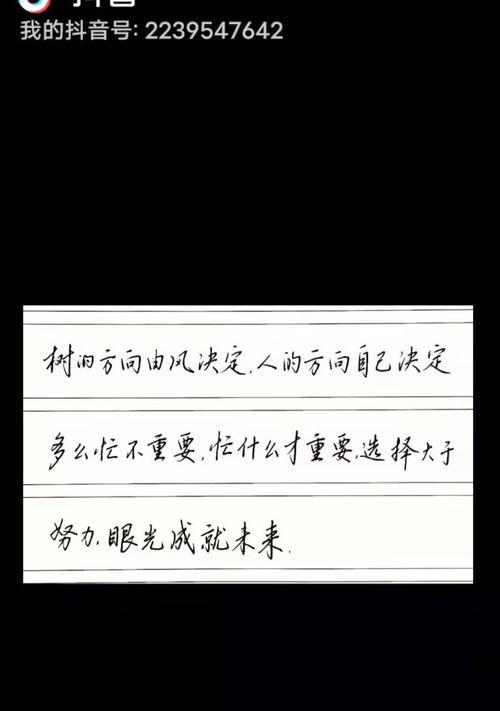 抖音
我的抖音号: 2239547642
树的方向由风决定,人的方向自己决定
多么忙不重要,忙什么才重要,选择大于
努力,眼光成就未来.